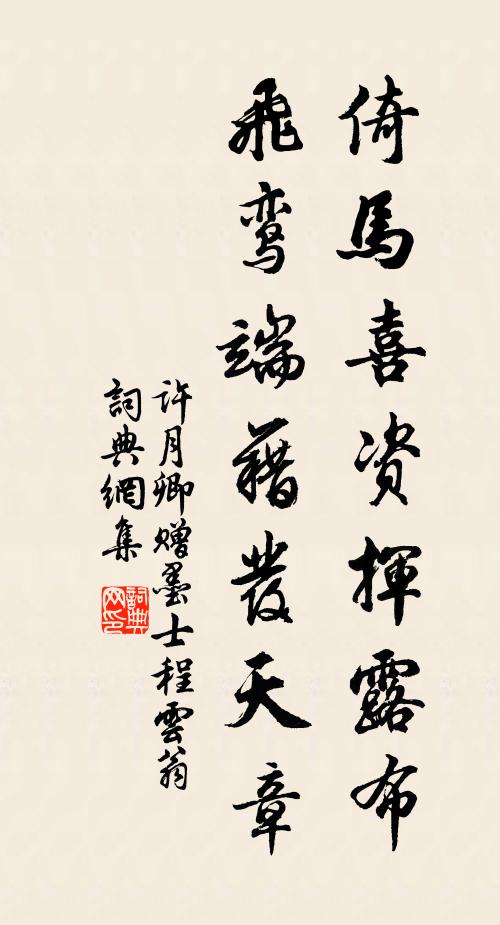 倚馬喜资揮露布
飛鸾端藉發天章
许月卿赠墨士程雲翁
詞典網集
詞典网印